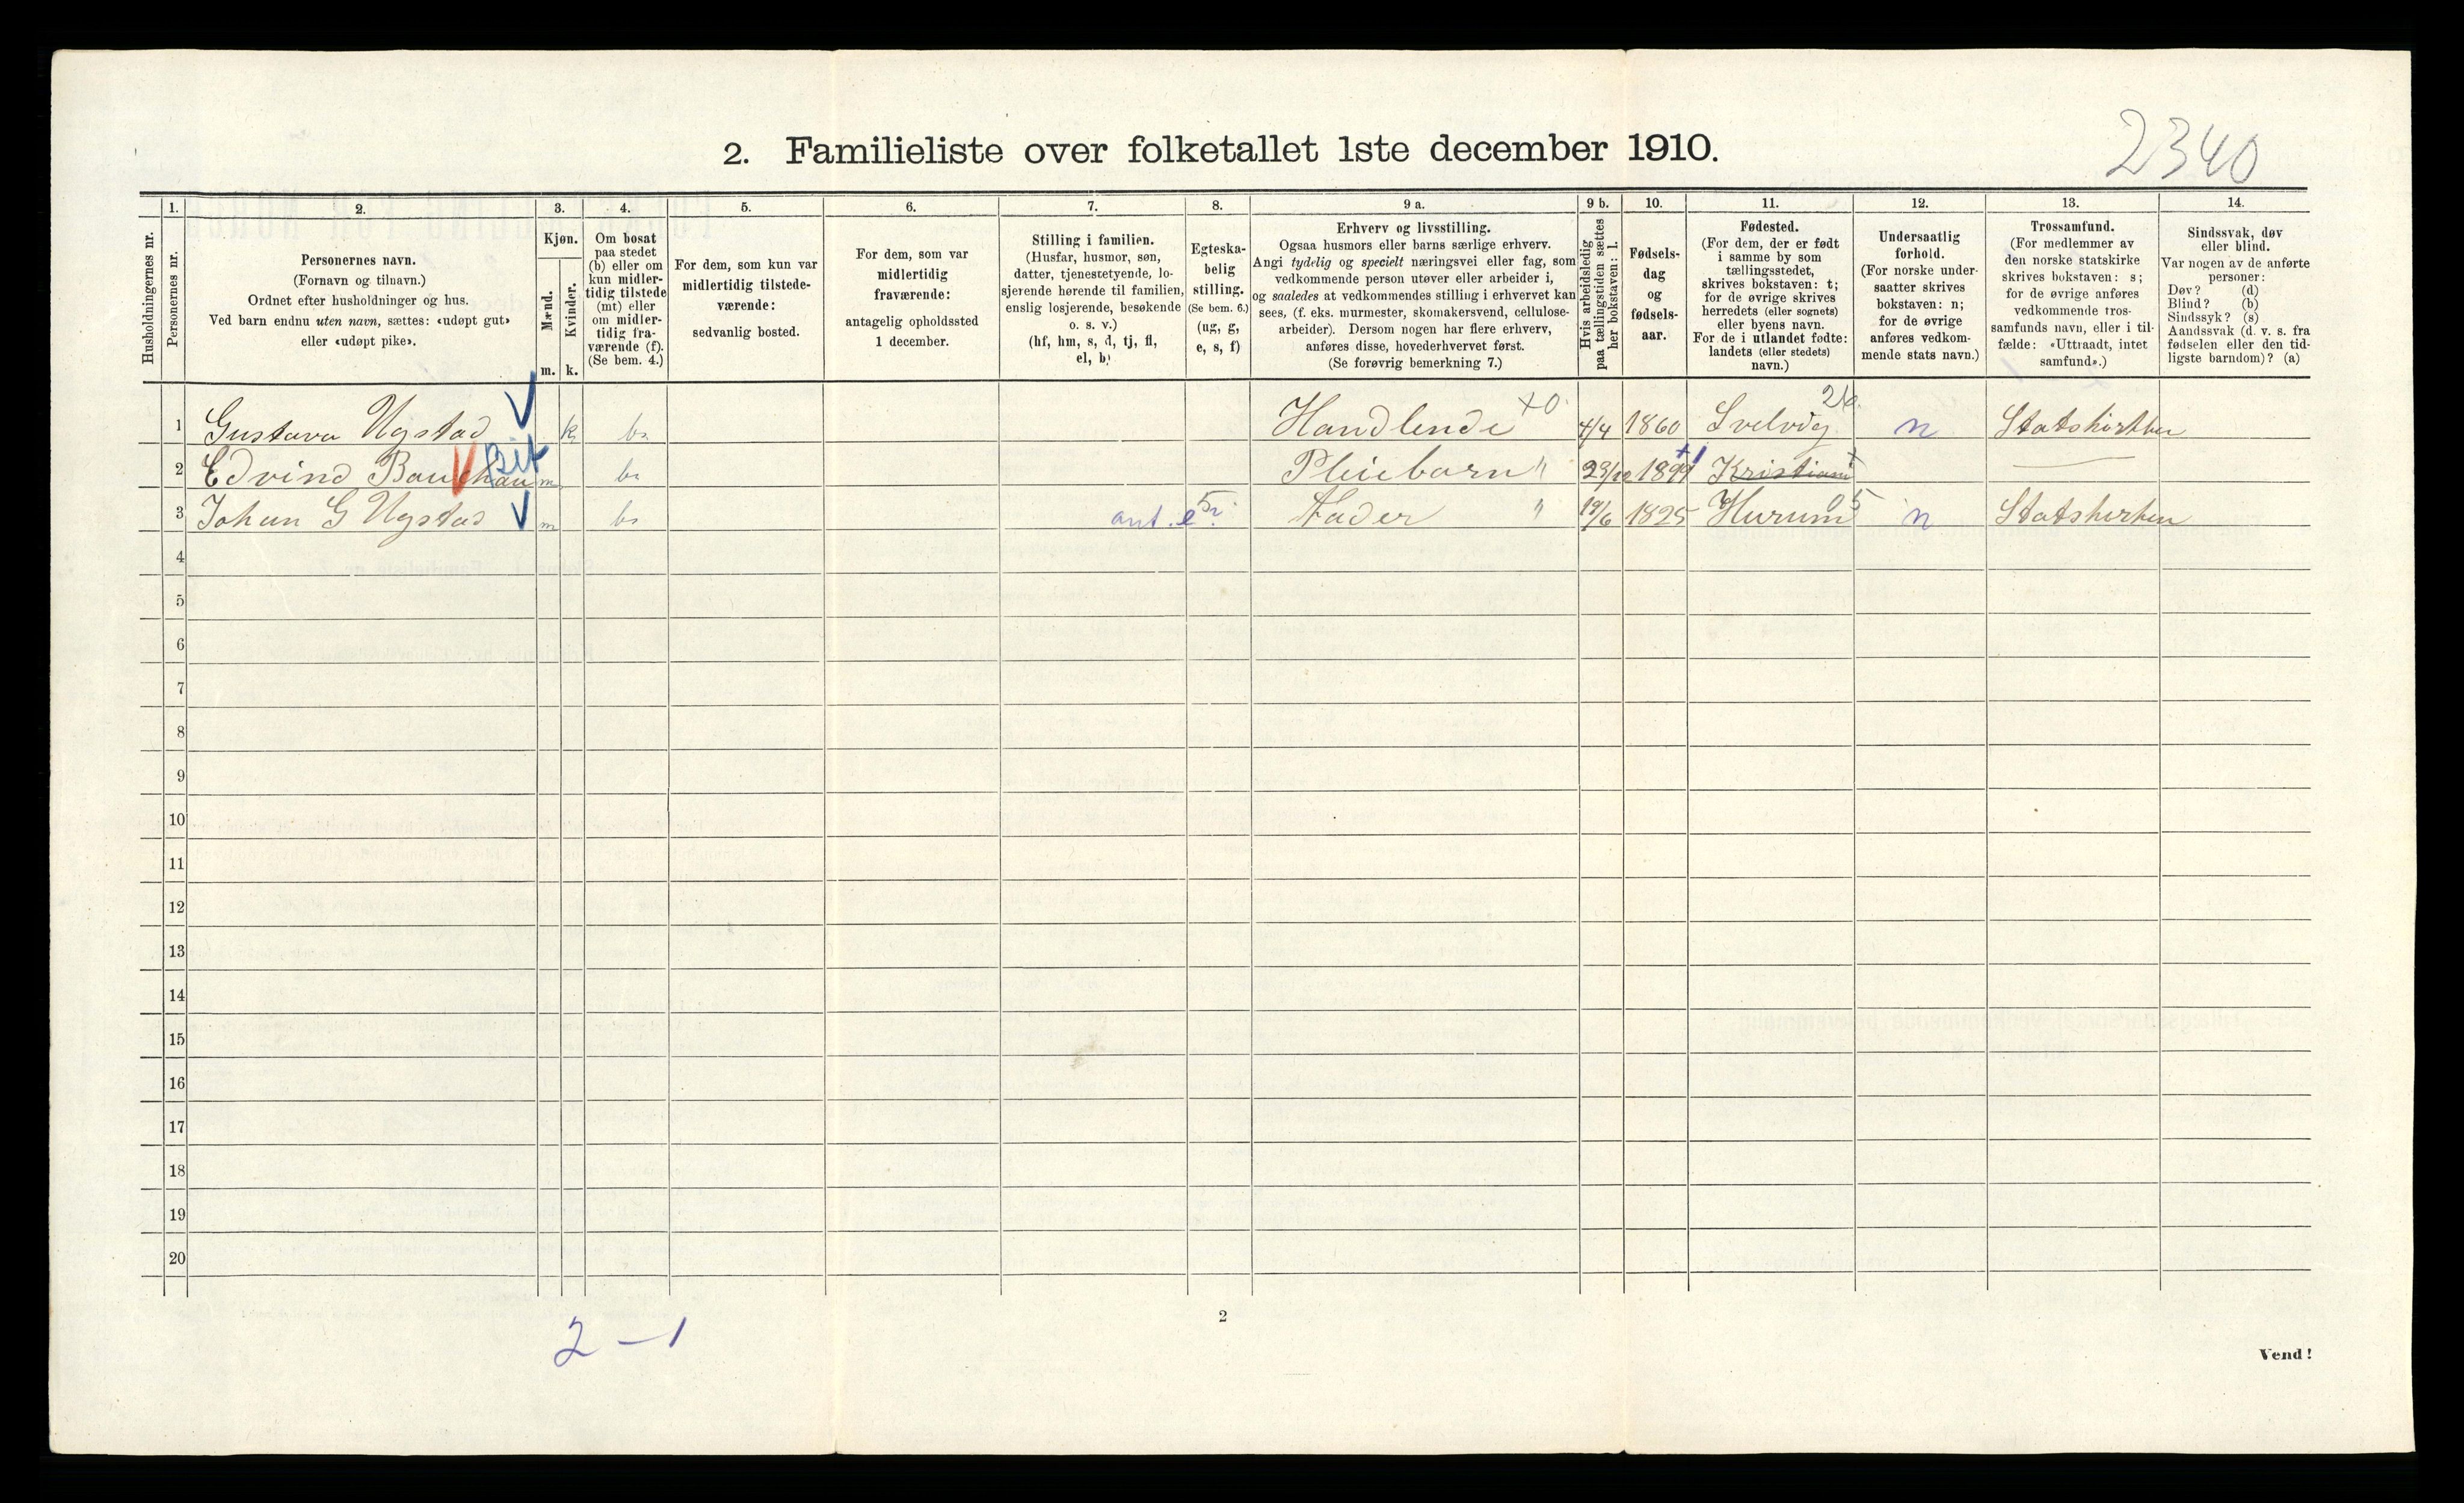 2340
2. Familieliste over folketallet 1ste december 1910.
Husholdningernes nr.
1.
Personernes nr.
2.
Personernes navn.
(Fornavn og tilnavn.)
Ordnet efter husholdninger og hus.
Ved barn endnu uten navn, sættes: «udøpt gut»
eller «udøpt pike».
3.
Kjøn.
Mænd.
Kvinder.
m. k.
4.
Om bosat
paa stedet
(b) eller om
kun midler-
tidig tilstede
(mt) eller
om midler-
tidig fra-
værende (f).
(Se bem. 4.)
5.
For dem, som kun var
midlertidig tilstede-
værende:
sedvanlig bosted.
6.
For dem, som var
midlertidig
fraværende:
antagelig opholdssted
1 december.
7.
Stilling i familien.
(Husfar, husmor, søn,
datter, tjenestetyende, lo-
sjerende hørende til familien,
enslig losjerende, besøkende
o. s. v.)
(hf, hm, s, d, tj, fl,
el, b)
8.
Egteska-
belig
stilling.
(Se bem. 6.)
(ug, g,
e, s, f)
9 a.
Erhverv og livsstilling.
Ogsaa husmors eller barns særlige erhverv.
Angi tydelig og specielt næringsvei eller fag, som
vedkommende person utøver eller arbeider i,
og saaledes at vedkommendes stilling i erhvervet kan
sees, (f. eks. murmester, skomakersvend, cellulose-
arbeider). Dersom nogen har flere erhverv,
anføres disse, hovederhvervet først.
(Se forøvrig bemerkning 7.)
9 b.
Hvis arbeidsledig
paa tællingstiden sættes
her bokstaven: l.
10.
Fødsels-
dag
og
fødsels-
aar.
11.
Fødested.
(For dem, der er født
i samme by som
tællingsstedet,
skrives bokstaven: t;
for de øvrige skrives
herredets (eller sognets)
eller byens navn.
For de i utlandet fødte:
landets (eller stedets)
navn.)
12.
Undersaatlig
forhold.
(For norske under-
saatter skrives
bokstaven: n;
for de øvrige
anføres vedkom-
mende stats navn.)
13.
Trossamfund.
(For medlemmer av
den norske statskirke
skrives bokstaven: s;
for de øvrige anføres
vedkommende tros-
samfunds navn, eller i til-
fælde: «Uttraadt, intet
samfund».)
14.
Sindssvak, døv
eller blind.
Var nogen av de anførte
personer:
Døv? (d)
Blind? (b)
Sindssyk? (s)
Aandssvak (d. v. s. fra
fødselen eller den tid-
ligste barndom)? (a)
1 Gustava Ugstad k b. Handlende +0 4/4 1860 Svelvig 26 n Statskirken
2 Edvind m b. Pleiebarn " 1899 +1 Kristiania —
3 Johan G Ugstad m b. ant. e Fader " 19/6 1825 Hurum 05 n Statskirken
4
5
6
7
8
9
10
11
12
13
14
15
16
17
18
19
20
2 – 1
2
Vend!